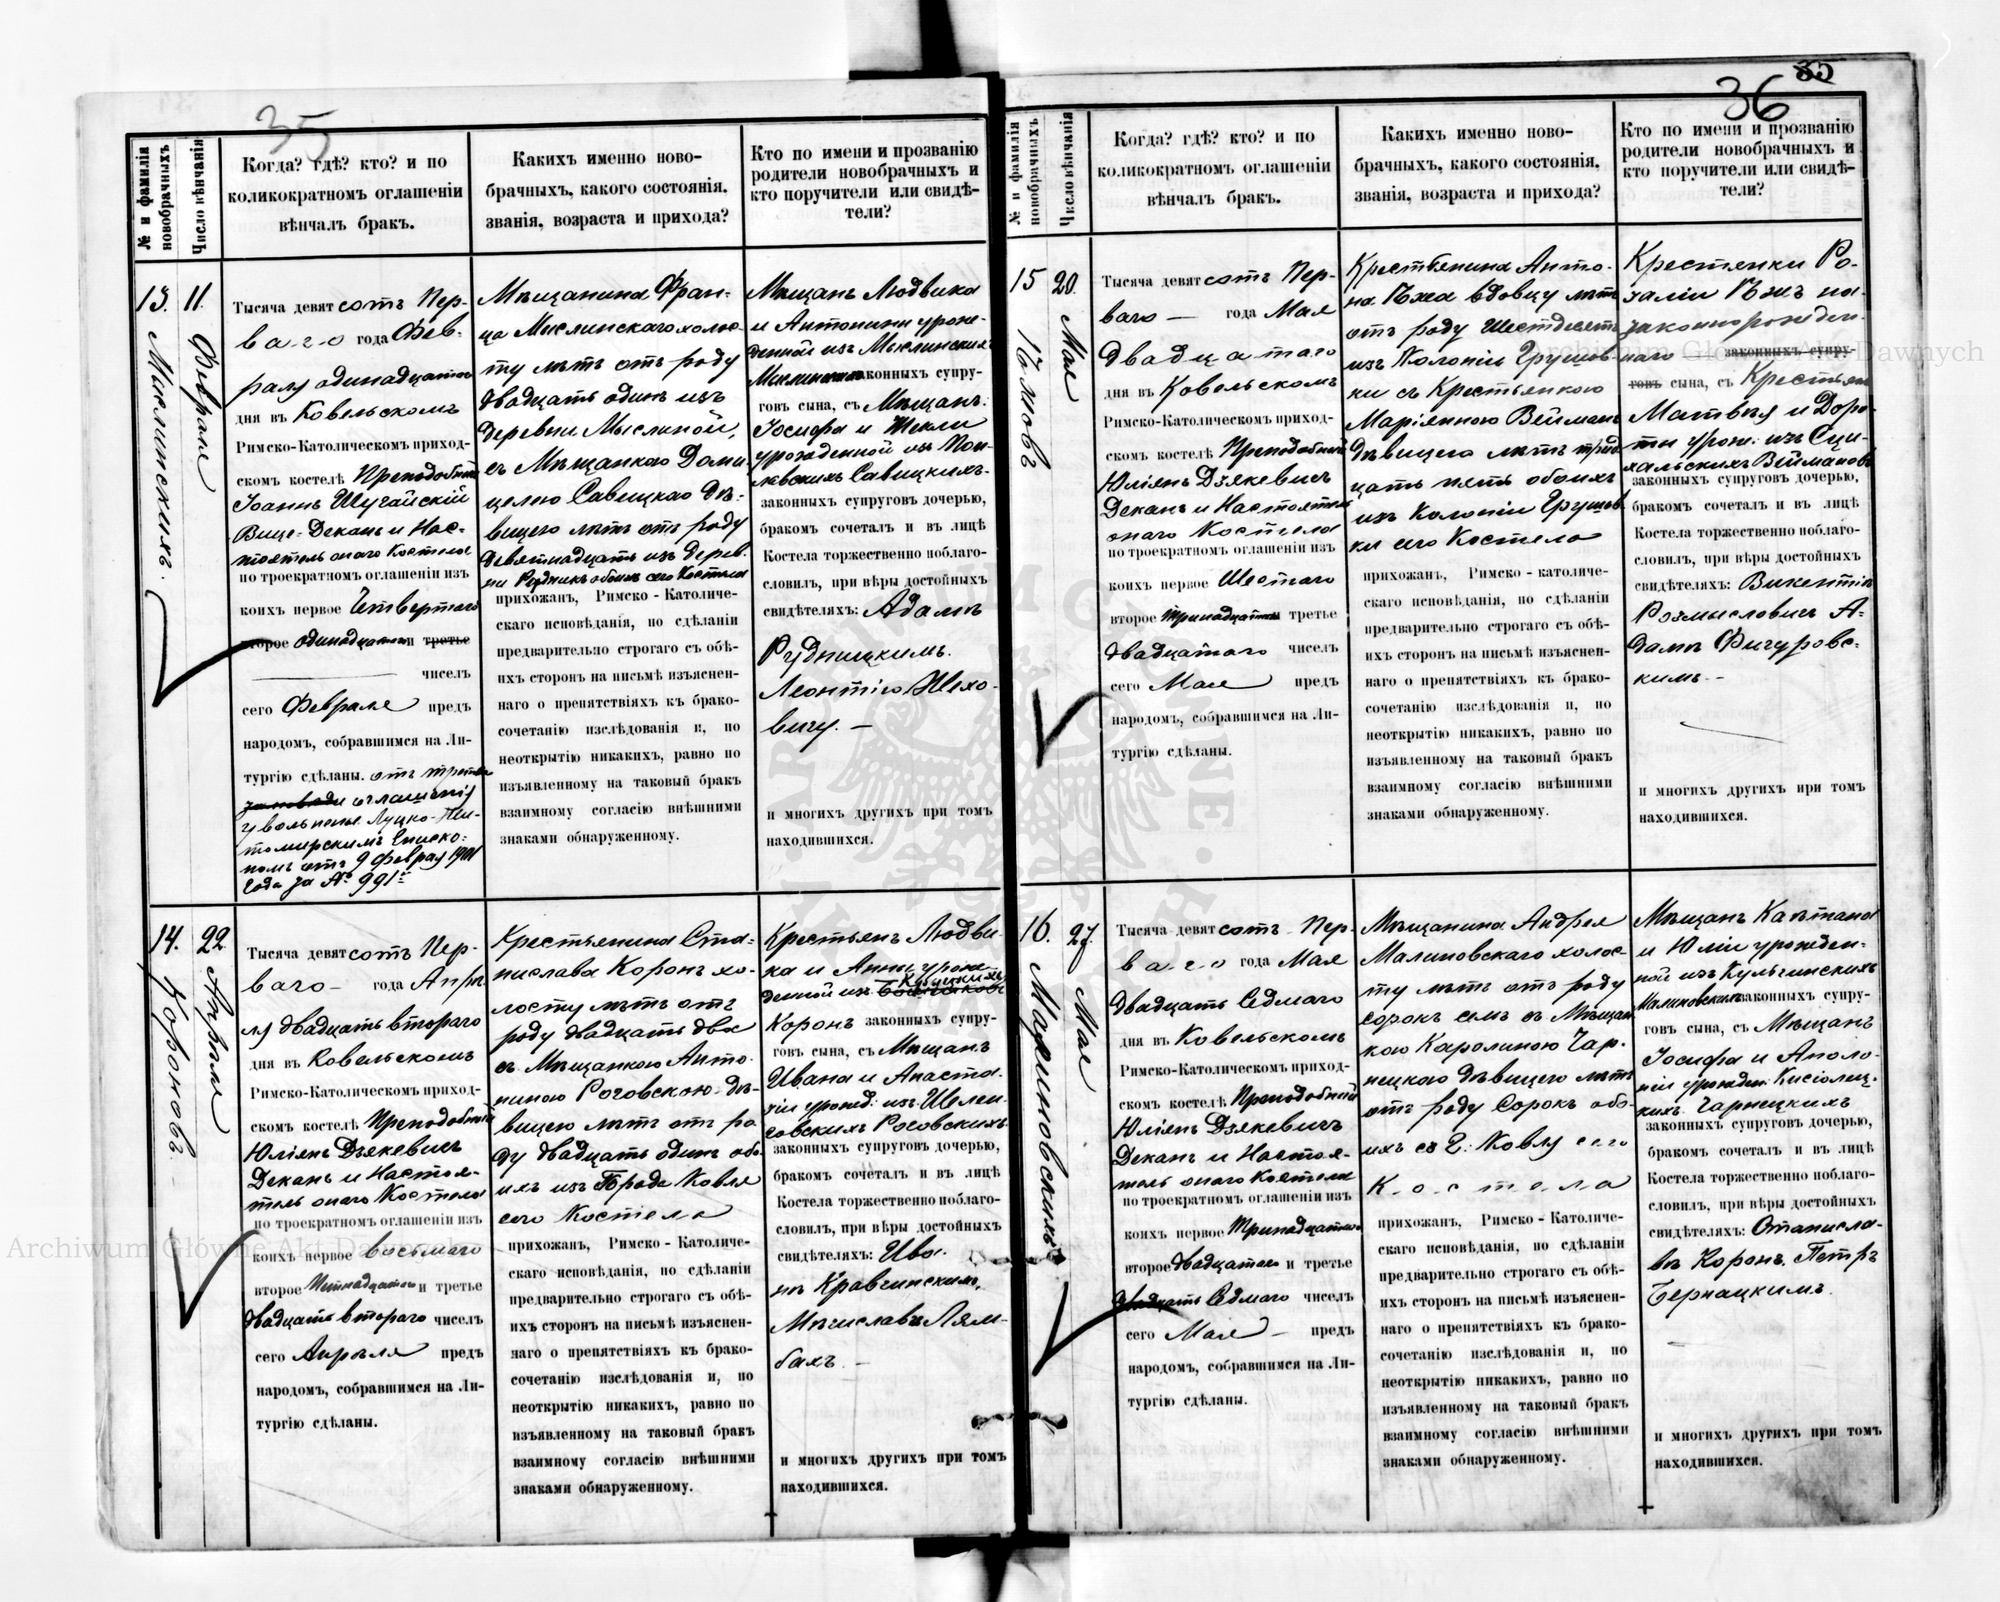 35
№ и фамилія новобрачныхъ
Число вѣнчанія
Когда? гдѣ? кто? и по
коликократномъ оглашеніи
вѣнчалъ бракъ.
Какихъ именно ново-
брачныхъ, какого состоянія,
званія, возраста и прихода?
Кто по имени и прозванію
родители новобрачныхъ и
кто поручители или свидѣ-
тели?
13.
Мыслинскихъ.
11.
Февраля
Тысяча девятсотъ Пер-
ваго года Фев-
раля одинадцатаго
дня въ Ковельскомъ
Римско-Католическомъ приход-
скомъ костелѣ Преподобный
Іоаннъ Шучайскій
Вице-Деканъ и Нас-
тоятель онаго Костела
по троекратномъ оглашеніи изъ
коихъ первое Четвертаго
второе одинадцатаго и третье
чиселъ
сего Февраля предъ
народомъ, собравшимся на Ли-
тургію сдѣланы. отъ третьяго
оглашенія
увольненье Луцко-Жи-
томирскимъ Еписко-
помъ отъ 9 февраля 1901
года за № 991
Мѣщанина Фран-
ца Мыслинскаго холос-
ту лѣтъ отъ роду
двадцать одинъ изъ
деревни Мыслиной,
съ Мѣщанкою Доми-
целею Савицкою дѣ-
вицею лѣтъ отъ роду
девятнадцать изъ дерев-
ни Рудникъ обоихъ сего Костела
прихожанъ, Римско-Католиче-
скаго исповѣданія, по сдѣланіи
предварительно строгаго съ обѣ-
ихъ сторонъ на письмѣ изъяснен-
наго о препятствіяхъ къ брако-
сочетанію изслѣдованія и, по
неоткрытію никакихъ, равно по
изъявленному на таковый бракъ
взаимному согласію внѣшними
знаками обнаруженному.
Мѣщанъ Людвика
и Антонины урож-
денной изъ Мыслинскихъ
Мыслинскихъ законныхъ супру-
говъ сына, съ Мѣщанъ
Іосифа и Теклі
урожденной изъ
Савицкихъ
законныхъ супруговъ дочерью,
бракомъ сочеталъ и въ лицѣ
Костела торжественно поблаго-
словилъ, при вѣры достойныхъ
свидѣтеляхъ: Адамѣ
Рудницкимъ.
Леонтію Шехо-
вичу. —
и многихъ другихъ при томъ
находившихся.
14.
Короновъ.
22
Апрѣля
Тысяча девятсотъ Пер-
ваго — года Апрѣ-
ля двадцать втораго
дня въ Ковельскомъ
Римско-Католическомъ приход-
скомъ костелѣ Преподобный
Юліянъ Дзякевичъ
Деканъ и Настоя-
тель онаго Костела
по троекратномъ оглашеніи изъ
коихъ первое восьмаго
второе Пятнадцатаго и третье
двадцать втораго чиселъ
сего Апрѣля предъ
народомъ, собравшимся на Ли-
тургію сдѣланы.
Крестьянина Ста-
нислава Коронъ хо-
лосту лѣтъ отъ
роду двадцать два
съ Мѣщанкою Анто-
ниною Роговскою дѣ-
вицею лѣтъ отъ ро-
ду двадцать одинъ обо-
ихъ изъ Города Ковля
сего Костела
прихожанъ, Римско-Католиче-
скаго исповѣданія, по сдѣланіи
предварительно строгаго съ обѣ-
ихъ сторонъ на письмѣ изъяснен-
наго о препятствіяхъ къ брако-
сочетанію изслѣдованія и, по
неоткрытію никакихъ, равно по
изъявленному на таковый бракъ
взаимному согласію внѣшними
знаками обнаруженному.
Крестьянъ Людви-
ка и Анны урож-
денной изъ
Коронъ законныхъ супру-
говъ сына, съ Мѣщанъ
Ивана и Анаста-
зіи урожд: изъ Шелен-
говскихъ Роговскихъ
законныхъ супруговъ дочерью,
бракомъ сочеталъ и въ лицѣ
Костела торжественно поблаго-
словилъ, при вѣры достойныхъ
свидѣтеляхъ: Ива-
нѣ Кравчинскимъ,
Мѣчиславѣ Лям-
бахъ. —
и многихъ другихъ при томъ
находившихся.
35
36
№ и фамилія новобрачныхъ
Число вѣнчанія
Когда? гдѣ? кто? и по
коликократномъ оглашеніи
вѣнчалъ бракъ.
Какихъ именно ново-
брачныхъ, какого состоянія,
званія, возраста и прихода?
Кто по имени и прозванію
родители новобрачныхъ и
кто поручители или свидѣ-
тели?
15
20.
Мая
Тысяча девятсотъ Пер-
ваго — года Мая
Двадцатаго
дня въ Ковельскомъ
Римско-Католическомъ приход-
скомъ костелѣ Преподобный
Юліянъ Дзякевичъ
Деканъ и Настоятель
онаго Костела
по троекратномъ оглашеніи изъ
коихъ первое Шестаго
второе тринадцатаго третье
двадцатаго чиселъ
сего Мая предъ
народомъ, собравшимся на Ли-
тургію сдѣланы.
Крестьянина Анто-
на вдовцу лѣтъ
отъ роду Шестдесятъ
изъ Колоніи Грушов-
ки съ Крестьянкою
Маріянною Вейманъ
дѣвицею лѣтъ трид-
цать пять обоихъ
изъ Колоніи Грушов-
ки сего Костела
прихожанъ, Римско-католиче-
скаго исповѣданія, по сдѣланіи
предварительно строгаго съ обѣ-
ихъ сторонъ на письмѣ изъяснен-
наго о препятствіяхъ къ брако-
сочетанію изслѣдованія и, по
неоткрытію никакихъ, равно по
изъявленному на таковый бракъ
взаимному согласію внѣшними
знаками обнаруженному.
Крестянки Ро-
заліи не-
законнорожден-
наго — законныхъ супру-
говъ сына, съ Крестьянъ
Матвѣя и Доро-
ти урож: изъ
Веймановъ
законныхъ супруговъ дочерью,
бракомъ сочеталъ и въ лицѣ
Костела торжественно поблаго-
словилъ, при вѣры достойныхъ
свидѣтеляхъ: Викентію
Розмысловичъ А-
дамѣ Фигуровс-
кимъ. -
и многихъ другихъ при томъ
находившихся.
16.
Малиновскихъ
27.
Мая
Тысяча девятсотъ Пер-
ваго года Мая
двадцать Седмаго
дня въ Ковельскомъ
Римско-Католическомъ приход-
скомъ костелѣ Преподобный
Юліянъ Дзякевичъ
Деканъ и Настоя-
тель онаго Костела
по троекратномъ оглашеніи изъ
коихъ первое Тринадцатаго
второе двадцатаго и третье
двадцать Седмаго чиселъ
сего Мая — предъ
народомъ, собравшимся на Ли-
тургію сдѣланы.
Мѣщанина Андрея
Малиновскаго холос-
ту лѣтъ отъ роду
сорокъ семь съ Мѣщан-
кою Каролиною Чар-
нецкою дѣвицею лѣтъ
отъ роду Сорокъ обо-
ихъ съ г: Ковля сего
Костела
прихожанъ, Римско-Католиче-
скаго исповѣданія, по сдѣланіи
предварительно строгаго съ обѣ-
ихъ сторонъ на письмѣ изъяснен-
наго о препятствіяхъ къ брако-
сочетанію изслѣдованія и, по
неоткрытію никакихъ, равно по
изъявленному на таковый бракъ
взаимному согласію внѣшними
знаками обнаруженному.
Мѣщанъ Каетана
и Юліи урожден-
ной изъ Кульчинскихъ
Малиновскихъ законныхъ супру-
говъ сына, съ Мѣщанъ
Іосифа и Аполо-
ніи урожден: Кисіолец-
кихъ Чарнецкихъ
законныхъ супруговъ дочерью,
бракомъ сочеталъ и въ лицѣ
Костела торжественно поблаго-
словилъ, при вѣры достойныхъ
свидѣтеляхъ: Станисла-
вѣ Коронъ, Петрѣ
Бернацкимъ.
и многихъ другихъ при томъ
находившихся.
Archiwum Główne Akt Dawnych
Archiwum Główne Akt Dawnych